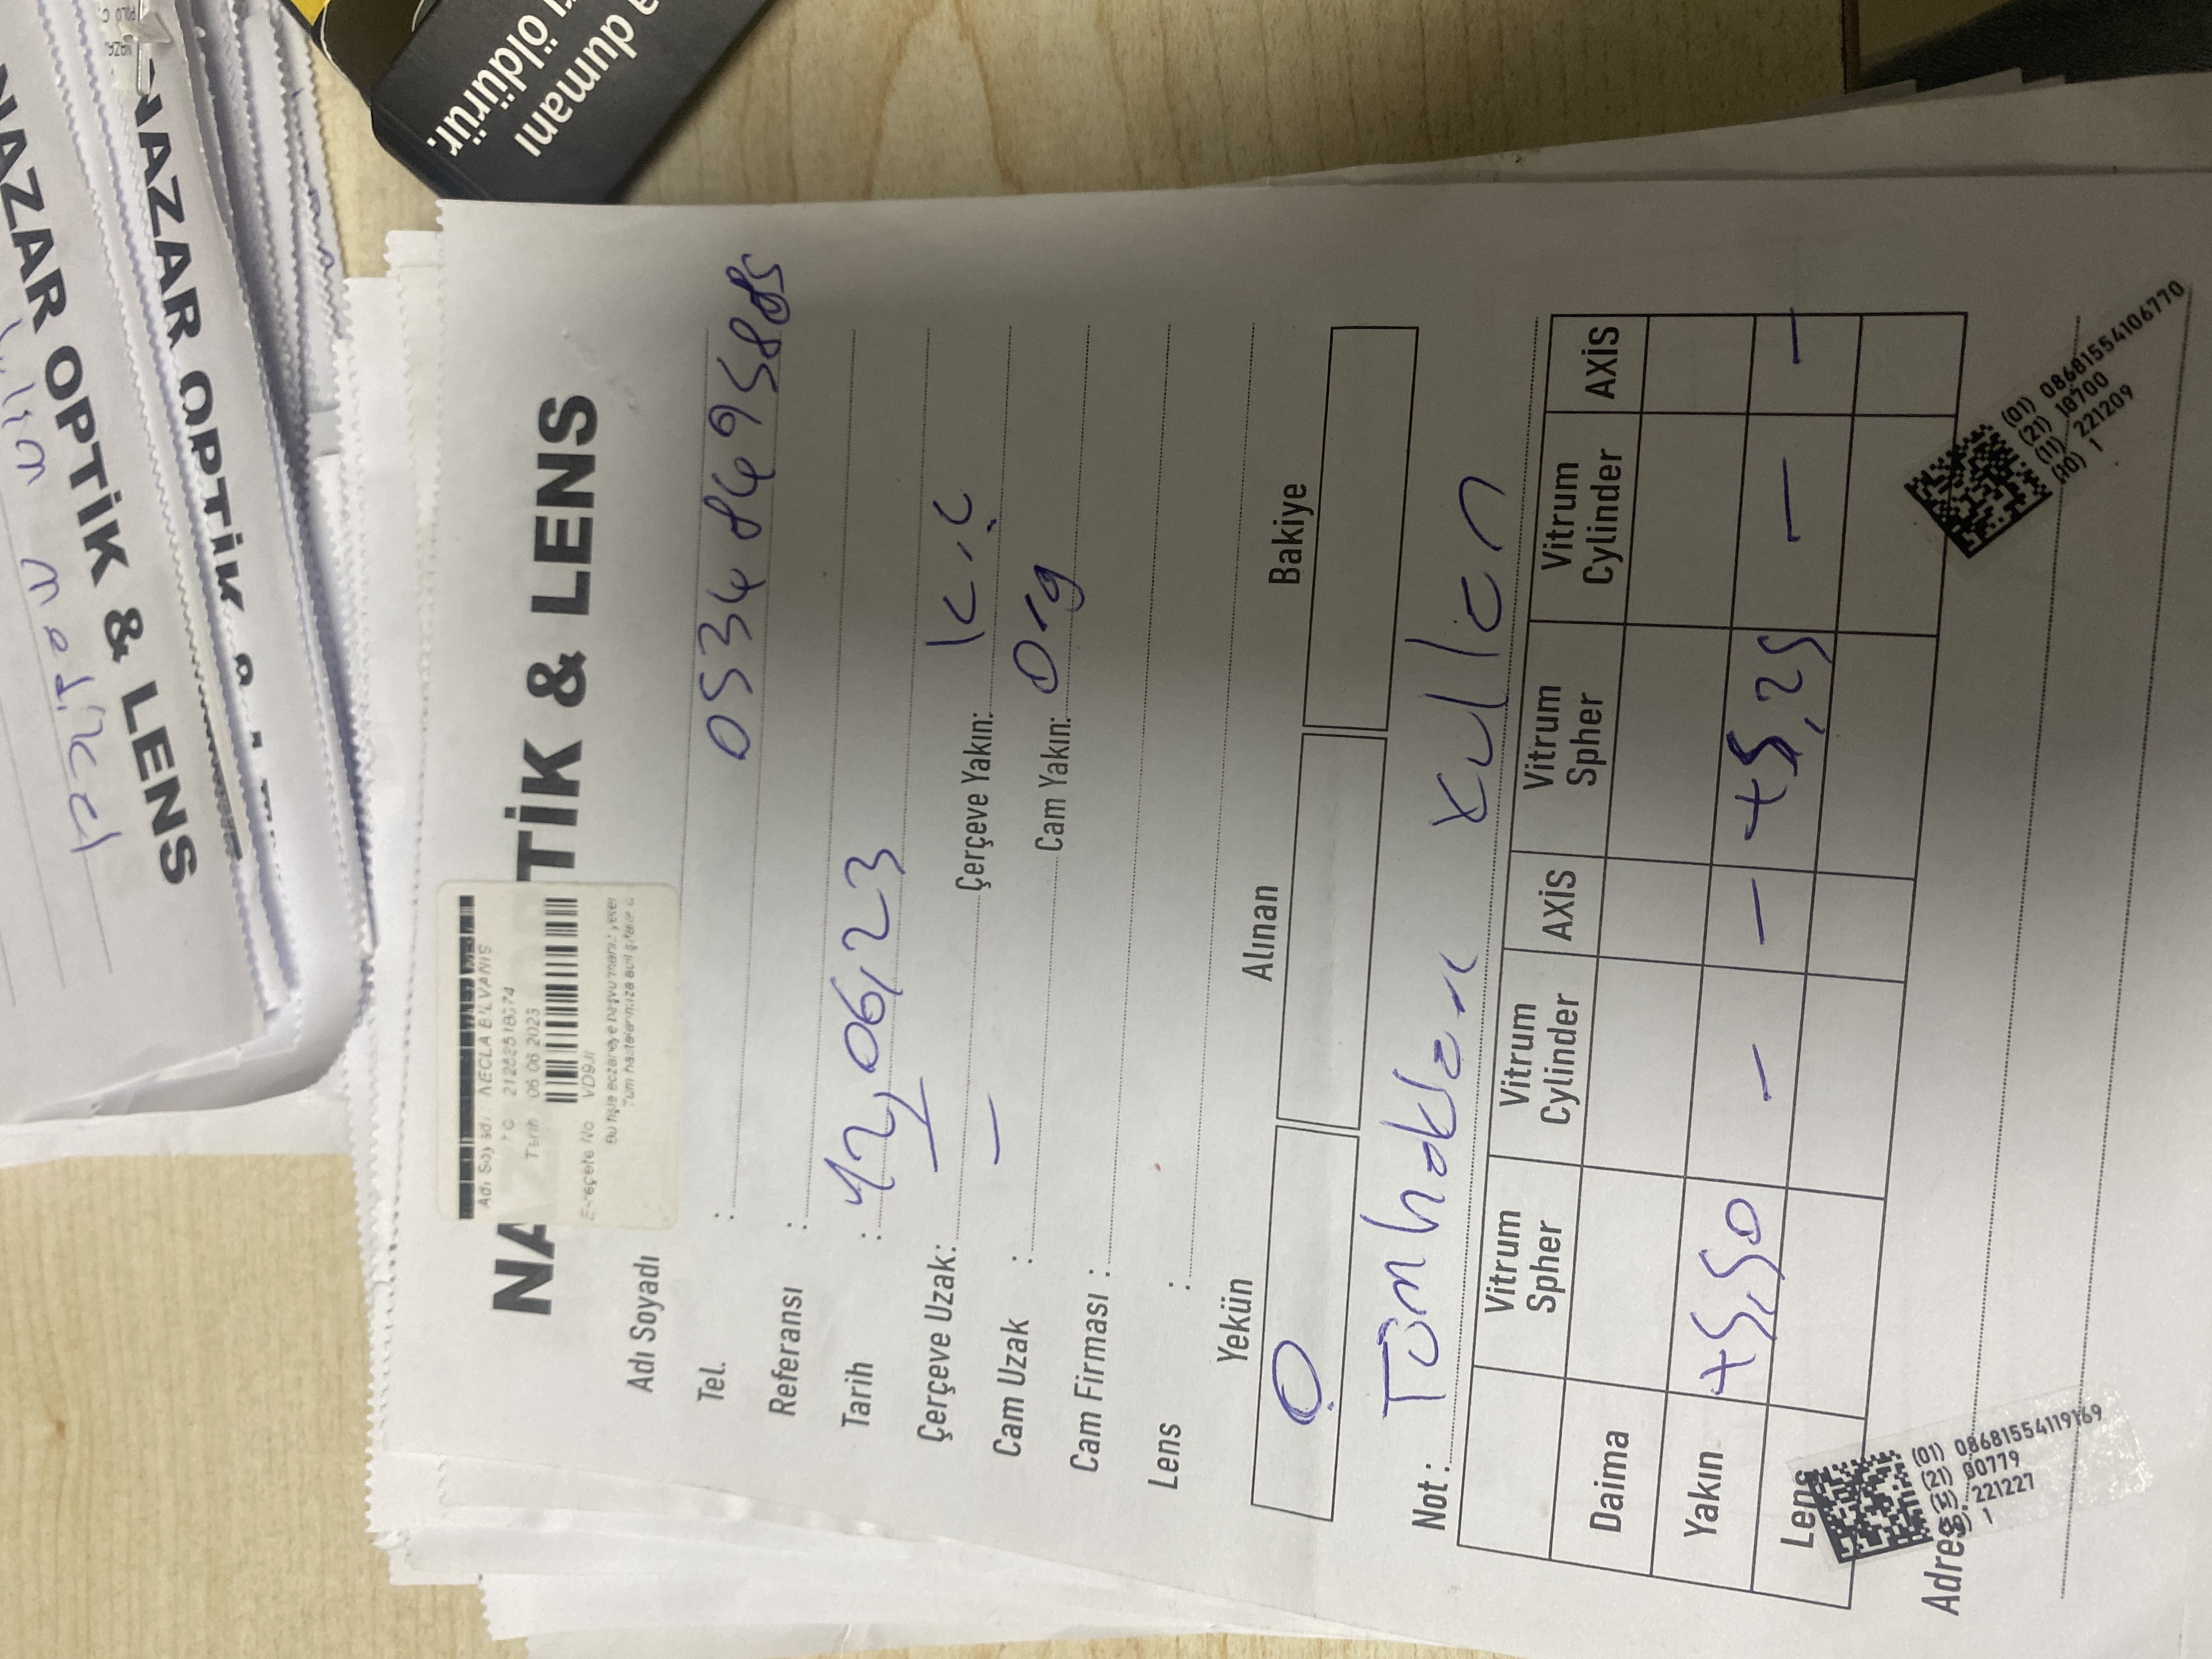 Lim medikal
NAZAR OPTİK & LENS
NAZAR OPTİK
dumanı
öldürür.
Adı Soyadı : NECLA BİLVANİS
TC
Tarih 06.06.2023
E-reçete No VD9JI
Bu fişle eczaneye başvurmanız yeter
Tüm hastalarımıza acil şifalar d
NA TİK & LENS
Adı Soyadı
Tel. : 0534 849 5885
Referansı :
Tarih : 12,06,23
Çerçeve Uzak: — Çerçeve Yakın: K.Ç
Cam Uzak : — Cam Yakın: Org
Cam Firması :
Lens :
Yekün Alınan Bakiye
Ö
Not : Tüm hakları kullan
Vitrum Spher Vitrum Cylinder AXİS Vitrum Spher Vitrum Cylinder AXİS
Daima
Yakın +5,50 — — +5,25 — —
Lens
Adres:
(01) 08681554119169
(21) 00779
(11) 221227
(10) 1
(01) 08681554106770
(21) 18700
(11) 221209
(10) 1